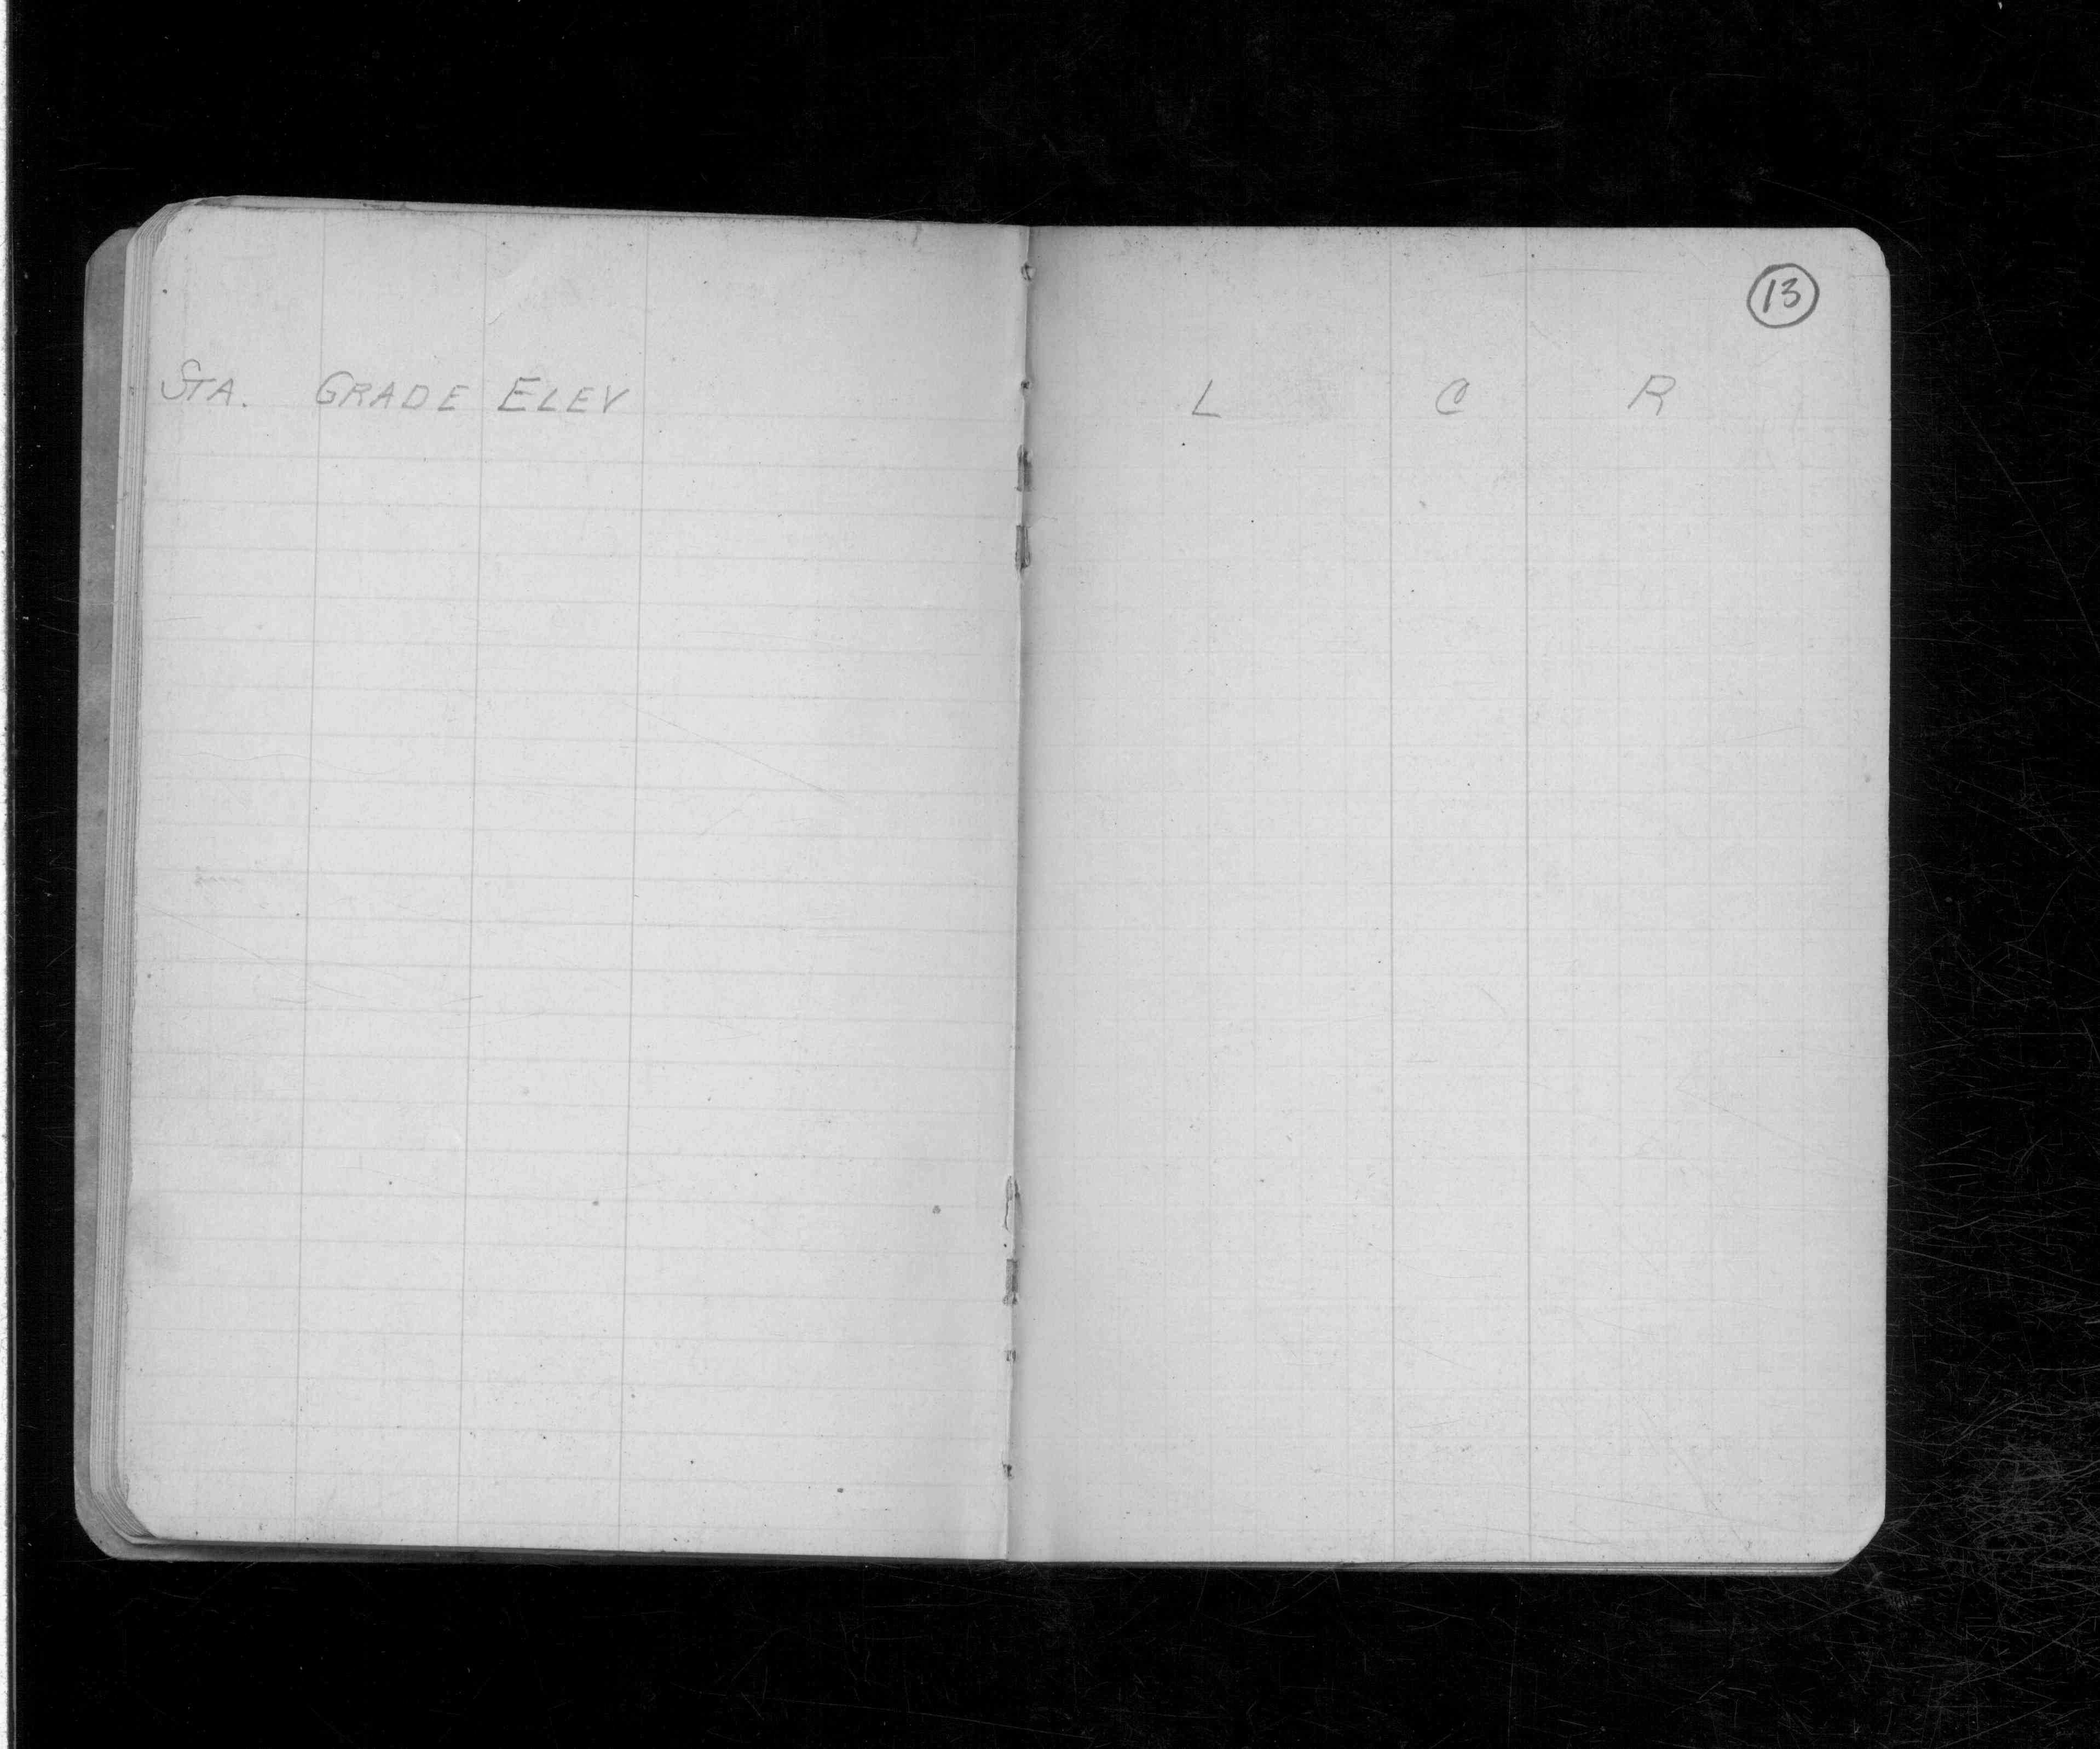 13
STA. GRADE ELEV
L C R